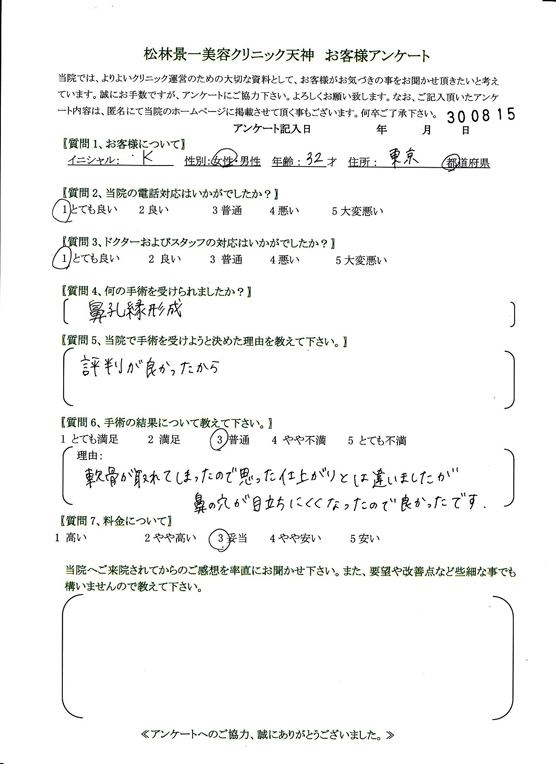 松林景一美容クリニック天神　お客様アンケート
当院では、よりよいクリニック運営のための大切な資料として、お客様がお気づきの事をお聞かせ頂きたいと考え
ています。誠にお手数ですが、アンケートにご協力下さい。よろしくお願い致します。なお、ご記入頂いたアンケ
ート内容は、匿名にて当院のホームページに掲載させて頂く事もございます。何卒ご了承下さい。 300815
アンケート記入日　　年　　月　　日
〖質問1、お客様について〗
イニシャル： K　性別：女性・男性　年齢：32才　住所：東京　都道府県
〖質問2、当院の電話対応はいかがでしたか？〗
1とても良い　2 良い　3 普通　4 悪い　5 大変悪い
〖質問3、ドクターおよびスタッフの対応はいかがでしたか？〗
1とても良い　2 良い　3 普通　4 悪い　5 大変悪い
〖質問4、何の手術を受けられましたか？〗
鼻孔縁形成
〖質問5、当院で手術を受けようと決めた理由を教えて下さい。〗
評判が良かったから
〖質問6、手術の結果について教えて下さい。〗
1 とても満足　2 満足　3 普通　4 やや不満　5 とても不満
理由：
軟骨が取れてしまったので思った仕上がりとは違いましたが
鼻の穴が目立ちにくくなったので良かったです.
〖質問7、料金について〗
1 高い　2 やや高い　3 妥当　4 やや安い　5 安い
当院へご来院されてからのご感想を率直にお聞かせ下さい。また、要望や改善点など些細な事でも
構いませんので教えて下さい。
≪アンケートへのご協力、誠にありがとうございました。≫